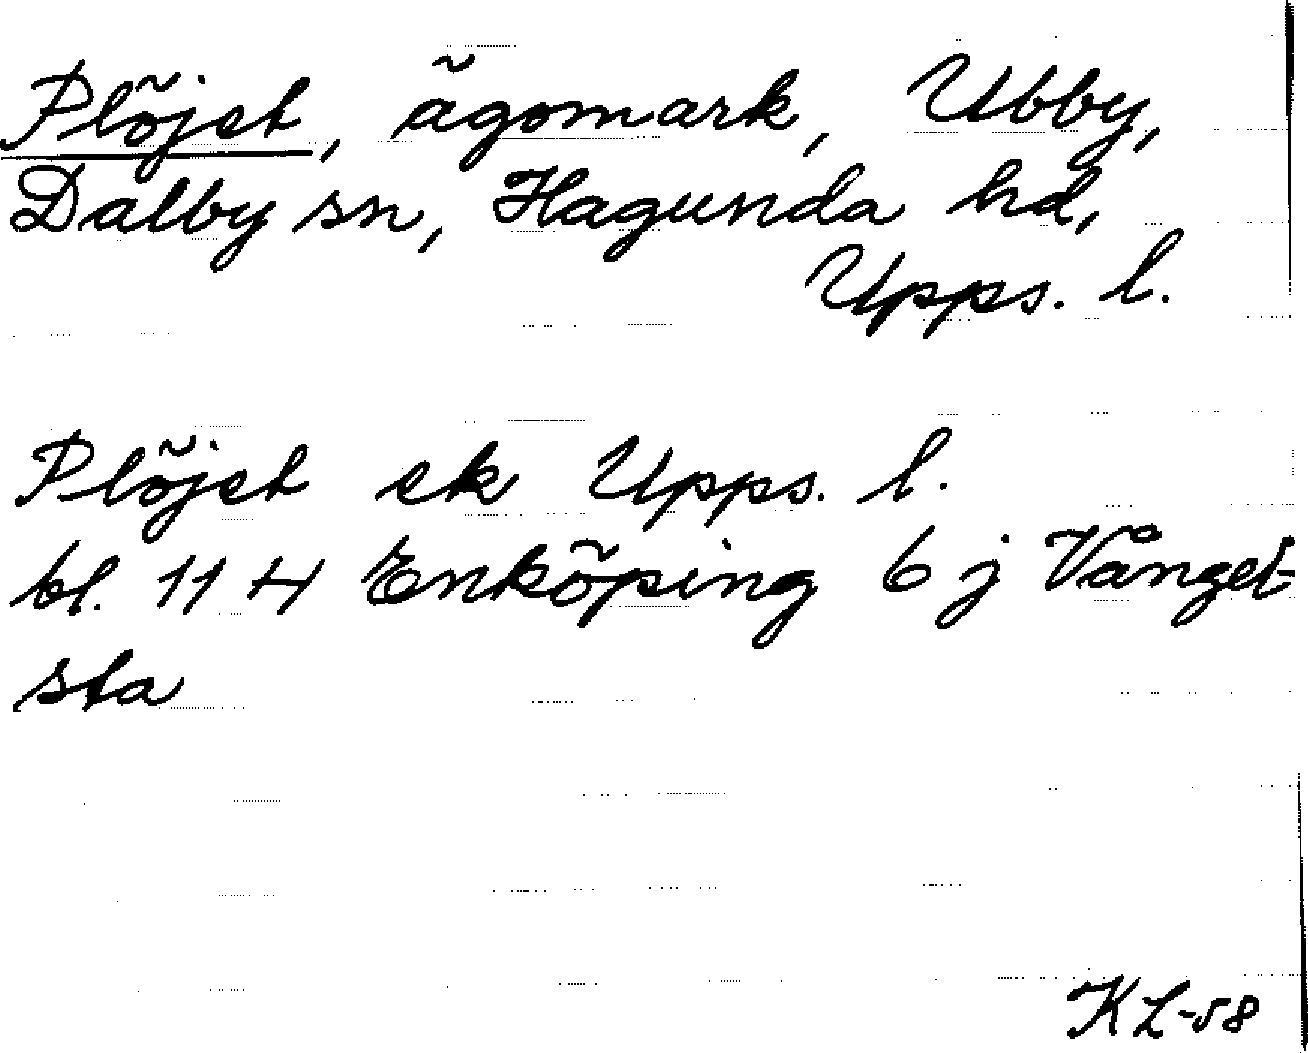 Plöjet, ägomark, Ubby,
Dalby sn, Hagunda hd,
Upps. l.
Plöjet ek Upps. l.
bl. 11 H Enköping 6 j Vånget-
sta
KL-58